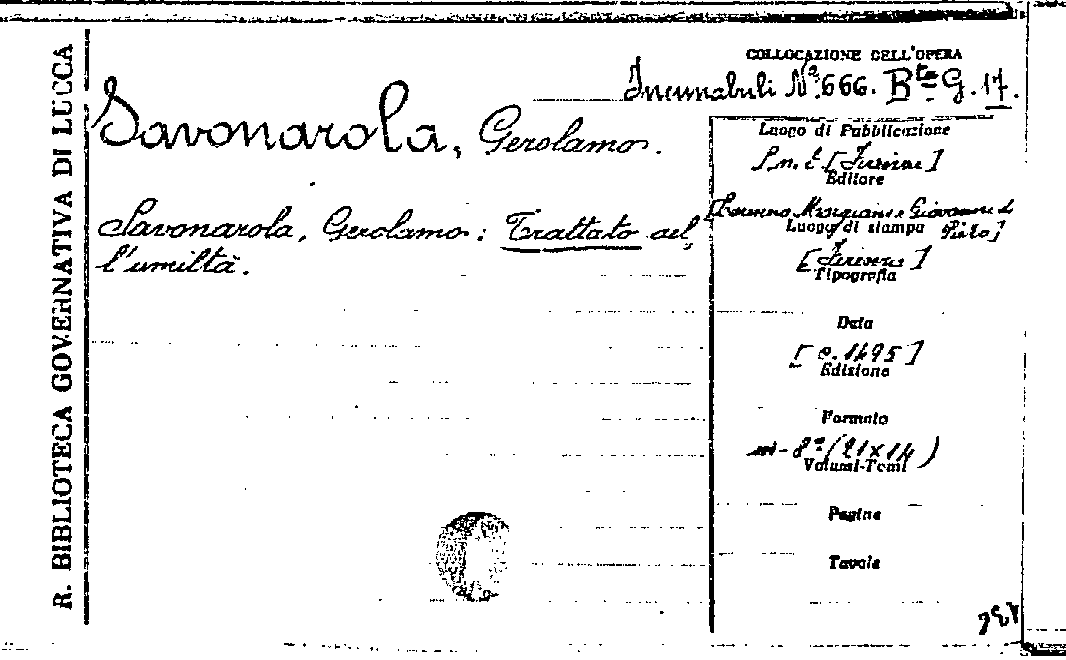 R. BIBLIOTECA GOVERNATIVA DI LUCCA
COLLOCAZIONE DELL'OPERA
Incunabuli Nº 666. Bta G. 17.
Savonarola, Gerolamo.
Savonarola, Gerolamo: Trattato del
l'umiltà.
Luogo di Pubblicazione
[Firenze]
Editore
[Lorenzo Morgiani e Giovanni di
Luogo di stampa
[Firenze]
Tipografia
Data
[c. 1495]
Edizione
Formato
in-8º (21x14)
Volumi-Tomi
Pagine
Tavole